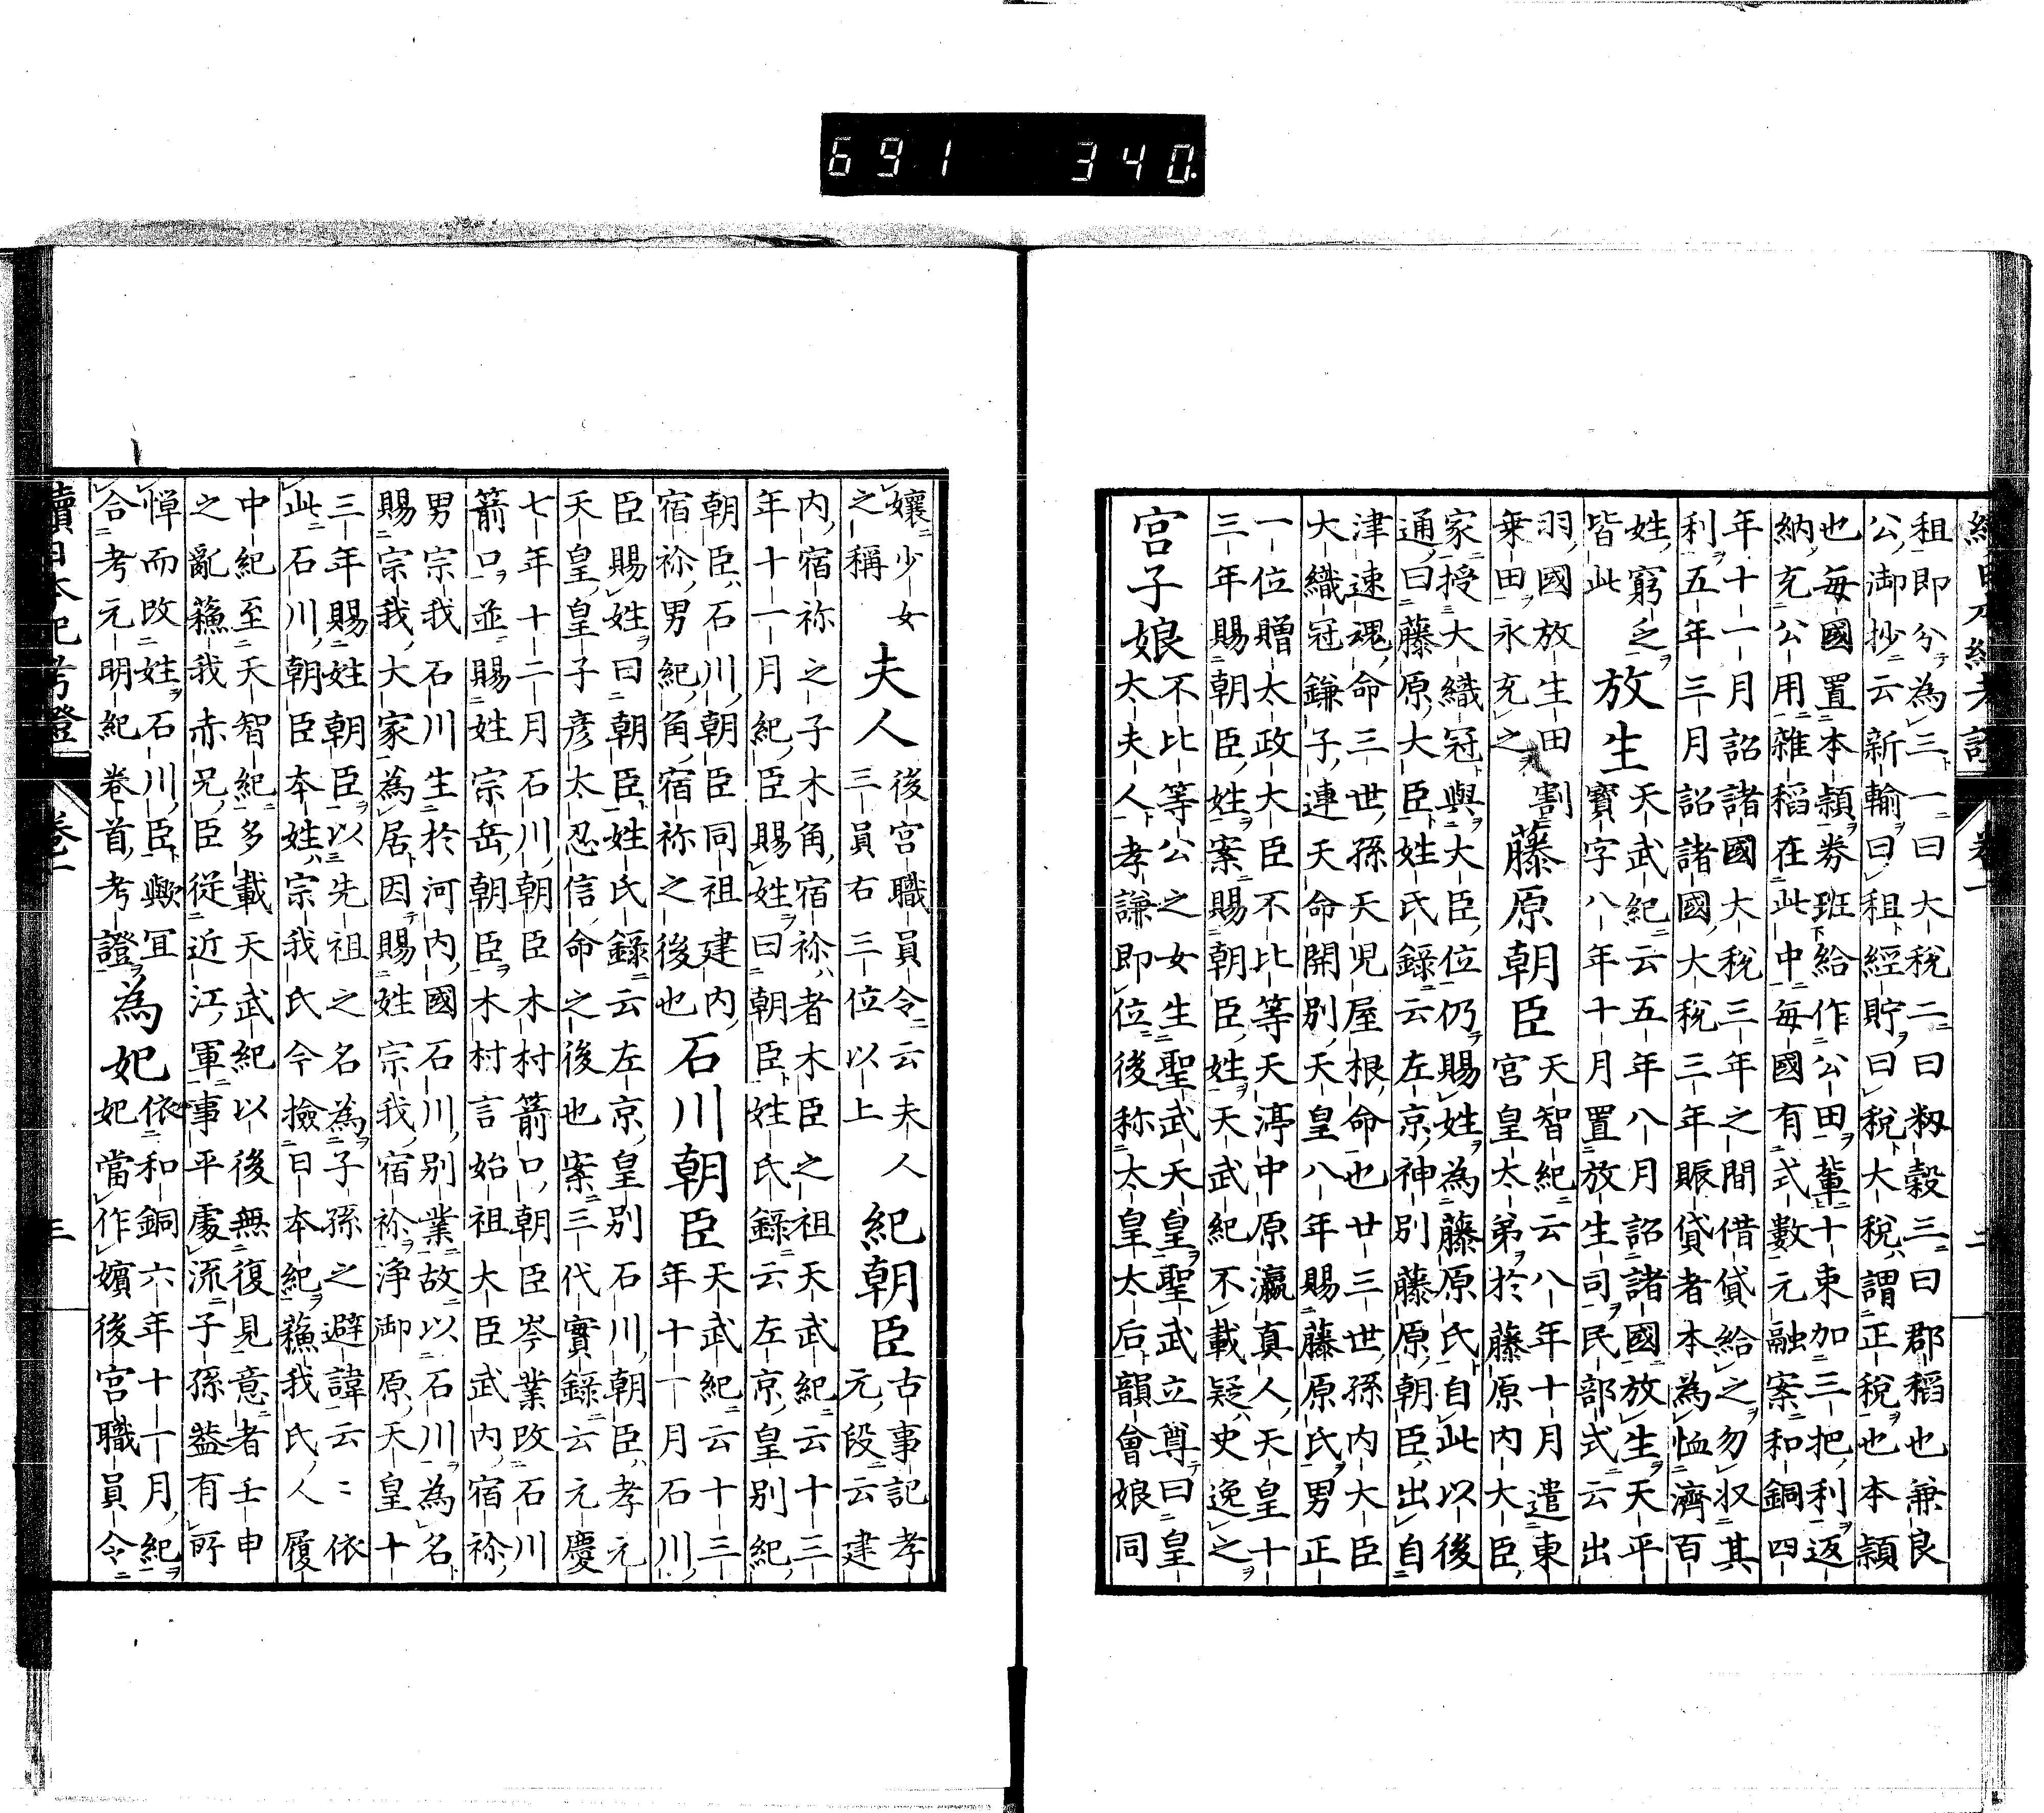 691 340.
租即分為三一曰大税二曰籾穀三曰郡稻也兼良
公御抄云新輸曰租經貯曰税大税謂正税也本頴
也毎國置本頴券班給作公田輩十束加三把利返
納充公用雜稻在此中毎國有式數元融案和銅四
年十一月詔諸國大税三年之間借貸給之勿収其
利五年三月詔諸國大税三年賑貸者本為恤濟百
姓窮乏
皆此
放生
天武紀云五年八月詔諸國放生天平
寳字八年十月置放生司民部式云出
羽國放生田割
乗田永充之
藤原朝臣
天智紀云八年十月遣東
宮皇太弟於藤原内大臣
家授大織冠與大臣位仍賜姓為藤原氏自此以後
通曰藤原大臣姓氏録云左京神別藤原朝臣出自
津速魂命三世孫天児屋根命也廿三世孫内大臣
大織冠鎌子連天命開別天皇八年賜藤原氏男正
一位贈太政大臣不比等天渟中原瀛真人天皇十
三年賜朝臣姓案賜朝臣姓天武紀不載疑史逸之
宮子娘
不比等公之女生聖武天皇聖武立尊曰皇
太夫人孝謙即位後称太皇太后韻會娘同
孃少女
之稱
夫人
後宮職員令云夫人
三員右三位以上
紀朝臣
古事記孝
元段云建
内宿祢之子木角宿祢者木臣之祖天武紀云十三
年十一月紀臣賜姓曰朝臣姓氏録云左京皇別紀
朝臣石川朝臣同祖建内
宿祢男紀角宿祢之後也
石川朝臣
天武紀云十三
年十一月石川
臣賜姓曰朝臣姓氏録云左京皇別石川朝臣孝元
天皇皇子彦太忍信命之後也案三代實録云元慶
七年十二月石川朝臣木村箭口朝臣岑業改石川
箭口並賜姓宗岳朝臣木村言始祖大臣武内宿祢
男宗我石川生於河内國石川別業故以石川為名
賜宗我大家為居因賜姓宗我宿祢浄御原天皇十
三年賜姓朝臣以先祖之名為子孫之避諱云〻依
此石川朝臣本姓宗我氏今撿日本紀蘓我氏人履
中紀至天智紀多載天武紀以後無復見意者壬申
之亂蘓我赤兄臣従近江軍事平處流子孫葢有所
惮而改姓石川臣歟冝依和銅六年十一月紀
合考元明紀卷首考證
為妃
妃當作嬪後宮職員令
續日本紀考證
卷一
二
三